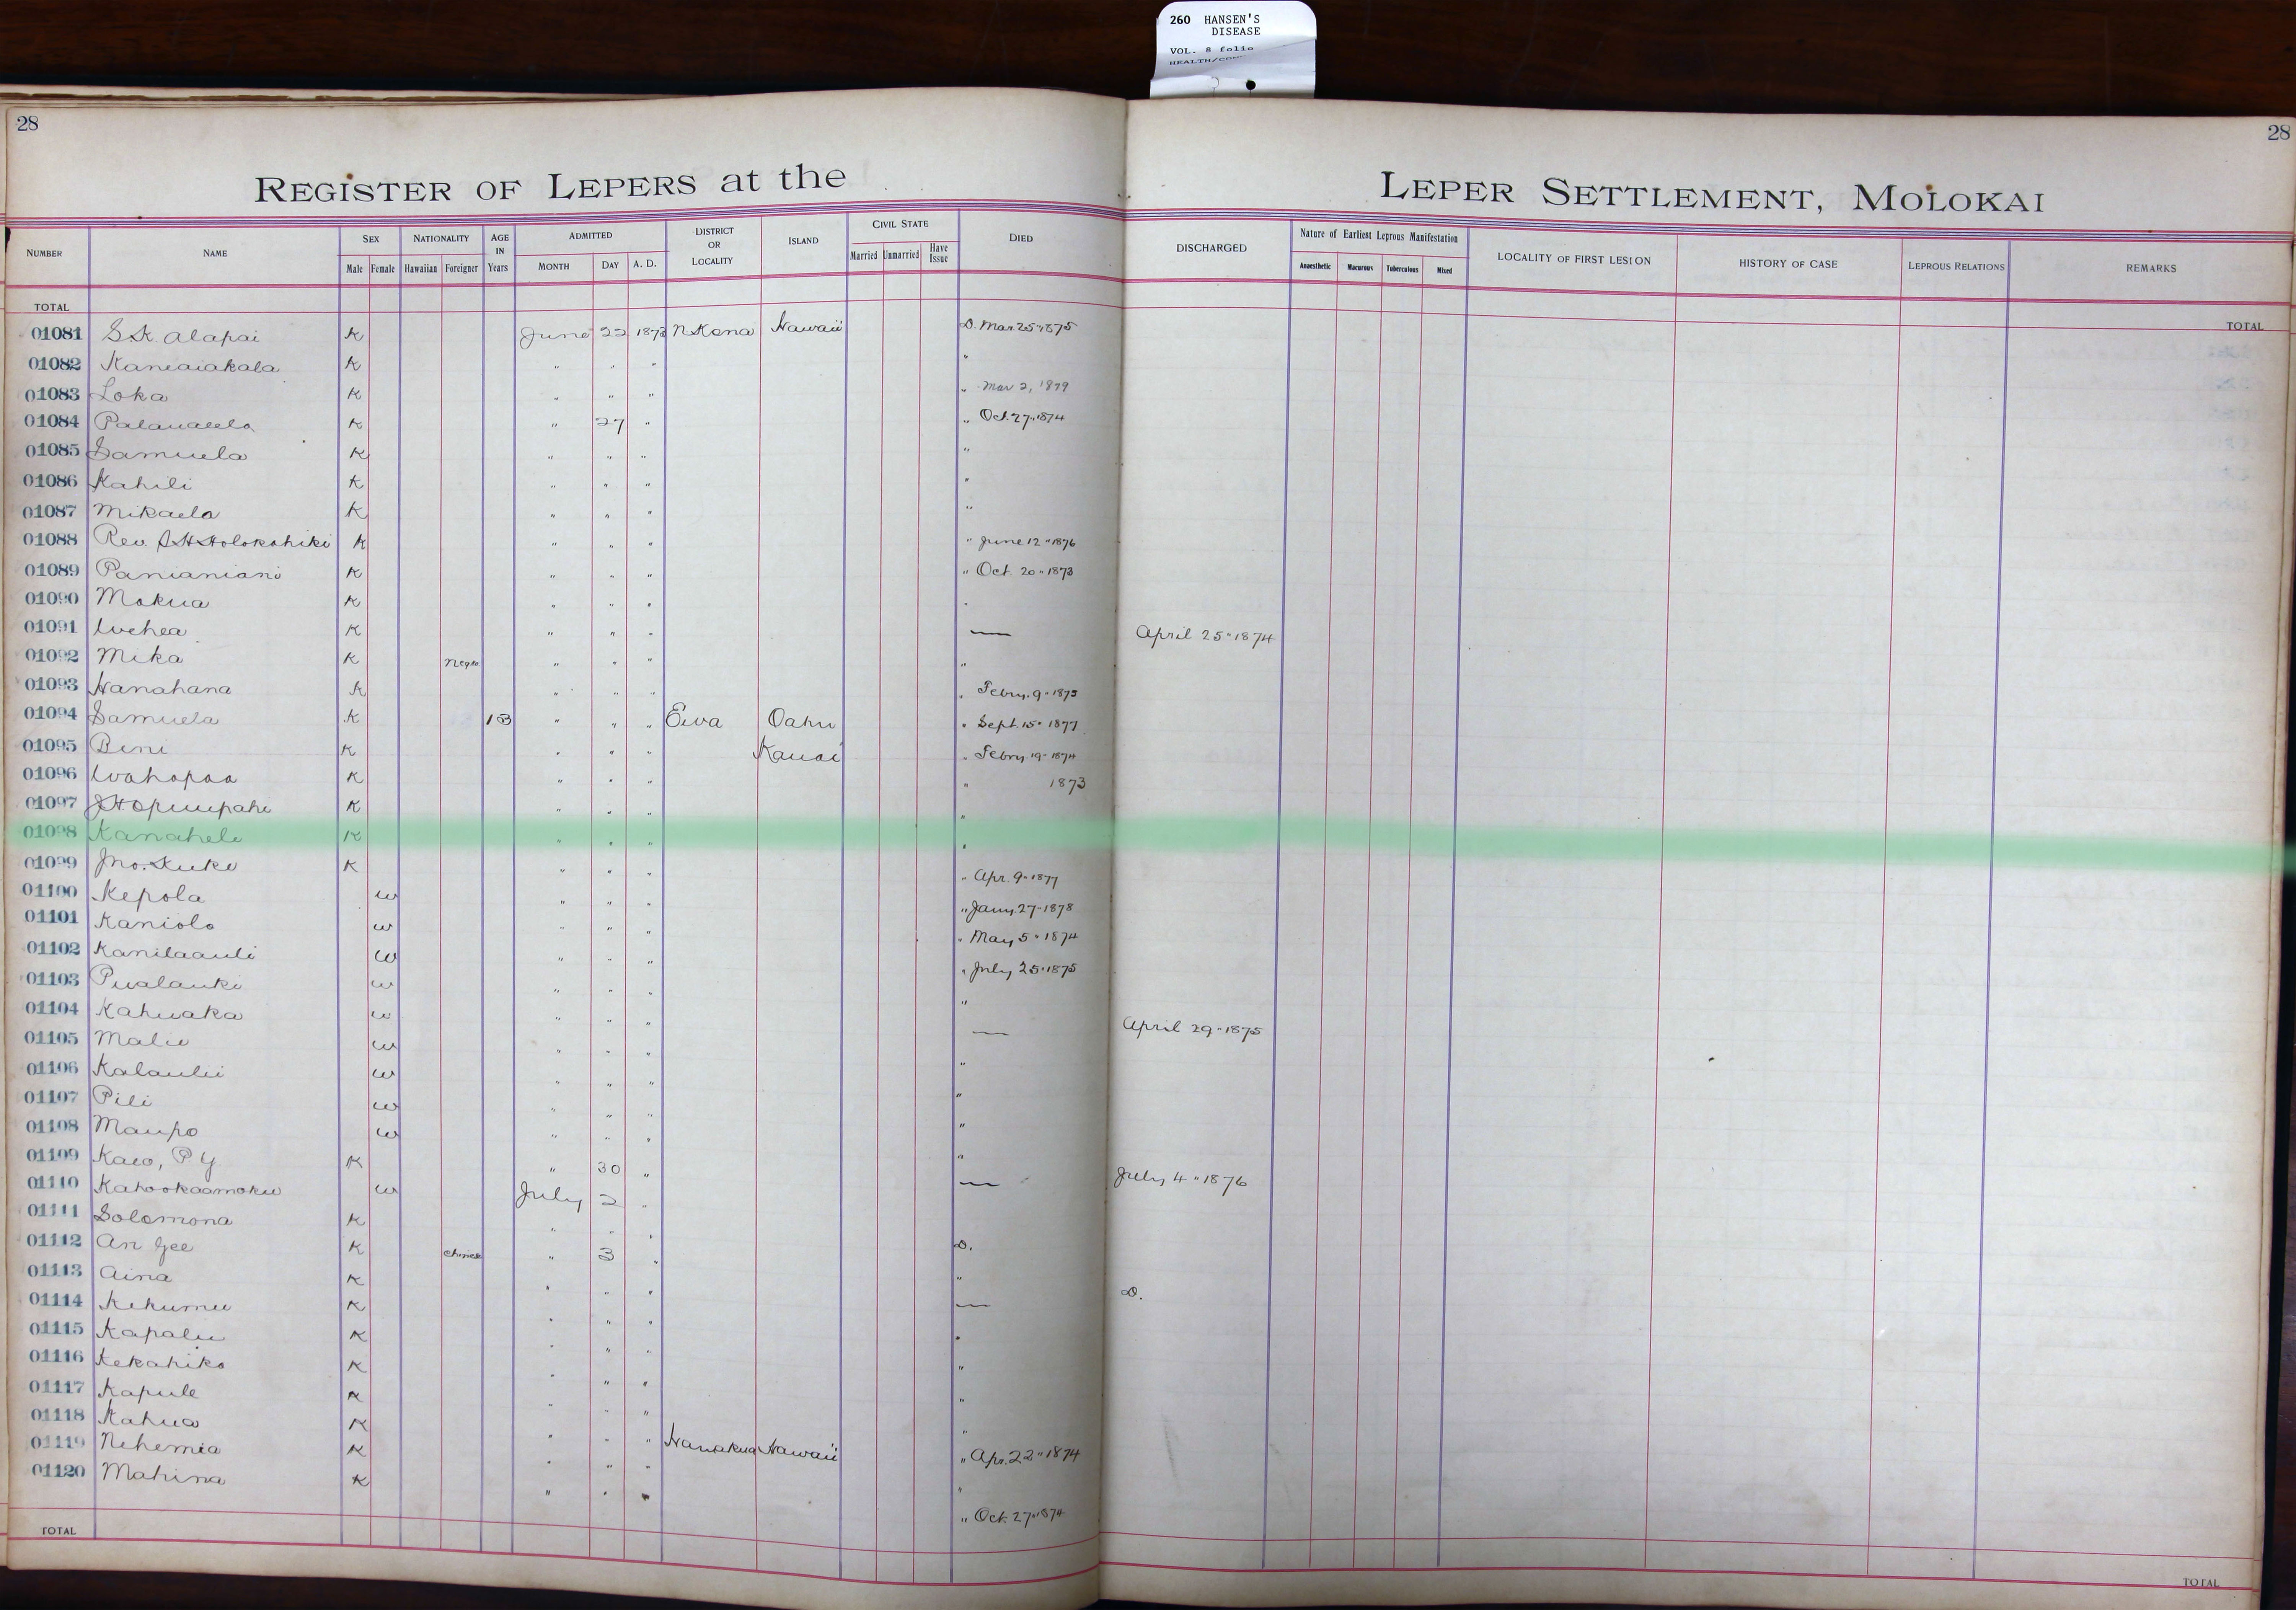 260 HANSEN'S
DISEASE
VOL. 8 folio
28
28
REGISTER OF LEPERS at the LEPER SETTLEMENT, MOLOKAI
NUMBER NAME SEX NATIONALITY AGE IN Years ADMITTED DISTRICT OR LOCALITY ISLAND CIVIL STATE DIED DISCHARGED Nature of Earliest Leprous Manifestation LOCALITY OF FIRST LESION HISTORY OF CASE LEPROUS RELATIONS REMARKS
Male Female Hawaiian Foreigner MONTH DAY A. D. Married Unmarried Have Issue Anaesthetic Macurous Tuberculous Mixed
TOTAL TOTAL
01081 S.K. Alapai K June 22 1873 N Kona Hawaii D. Mar. 25 " 1875
01082 Kaneaiakala K " " " "
01083 Loka K " " " " Mar 2, 1879
01084 K " 27 " " Oct. 27 " 1874
01085 Samuela K " " " "
01086 Kahili K " " " "
01087 Mikaela K " " " "
01088 Rev. Holokahiki K " " " " June 12 " 1876
01089 Panianiani K " " " " Oct. 20 " 1873
01090 Mokua K " " " "
01091 K " " " — April 25 " 1874
01092 Mika K Negro " " " "
01093 Hanahana K " " " " Febry. 9 "
01094 Samuela K 13 " " " Ewa Oahu " Sept. 15 " 1877
01095 Beni K " " " Kauai " Febry 19 " 1874
01096 Wahapaa K " " " " 1873
01097 J.H. K " " " "
01098 Kanahele K " " " "
01099 Jno. Kuke K " " " " Apr. 9 " 1877
01100 Kepola W " " " " Jany. 27 " 1878
01101 Kaniolo W " " " " May 5 " 1874
01102 Kanilaauli W " " " " July 25 " 1875
01103 Pualauki W " " " "
01104 Kahuaka W " " " — April 29 " 1875
01105 Malie W " " " "
01106 Kalaulii W " " " "
01107 Pili W " " " "
01108 Maupo W " " " "
01109 Kaeo, P Y K " 30 " — July 4 " 1876
01110 Kahookaamoku W July 2 "
01111 Solomona K " " " D.
01112 An Gee K Chinese " 3 " "
01113 Aina K " " " — D.
01114 Kekumu K " " " "
01115 Kapalu K " " " "
01116 Kekahiko K " " " "
01117 Kapule K " " " "
01118 Kahua K " " " "
01119 Nehemia K " " " Hamakua Hawaii " Apr. 22 " 1874
01120 Mahina K " " " "
" Oct. 27 " 1874
TOTAL TOTAL